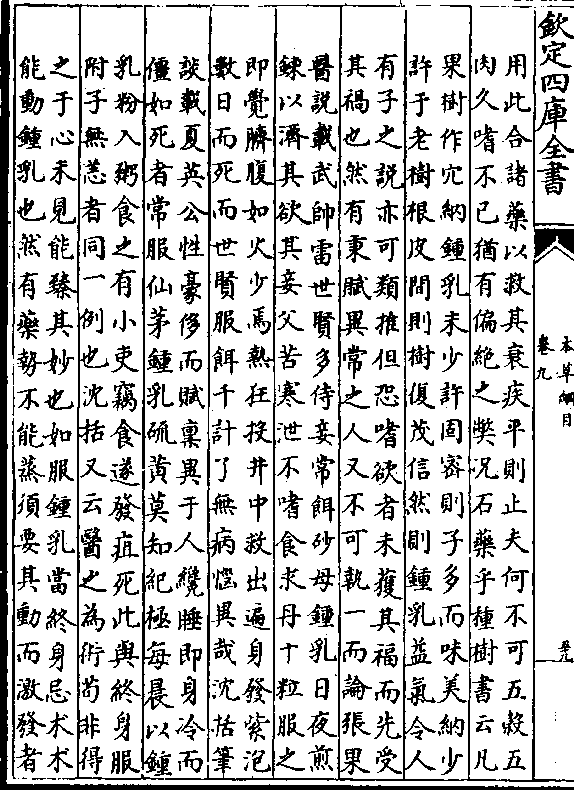 欽定四庫全書
本草綱目
卷九
用此合諸藥以救其衰疾平則止夫何不可五穀五
肉久嗜不已猶有偏絶之弊况石藥乎種樹書云凡
果樹作穴納鍾乳末少許固密則子多而味美納少
許于老樹根皮間則樹復茂信然則鍾乳益氣令人
有子之説亦可類推但恐嗜欲者未獲其福而先受
其禍也然有禀賦異常之人又不可執一而論張果
醫説載武帥雷世賢多侍妾常餌砂母鍾乳日夜煎
鍊以濟其欲其妾父苦寒泄不嗜食求丹十粒服之
即覺臍腹如火少焉熱狂投井中救出遍身發紫泡
數日而死而世賢服餌千計了無病惱異哉沈括筆
談載夏英公性豪侈而賦禀異于人纔睡即身冷而
僵如死者常服仙茅鍾乳硫黄莫知紀極每晨以鍾
乳粉入粥食之有小吏竊食遂發疽死此與終身服
附子無恙者同一例也沈括又云醫之為術苟非得
之于心未見能臻其妙也如服鍾乳當終身忌术术
能動鍾乳也然有藥勢不能蒸須要其動而激發者